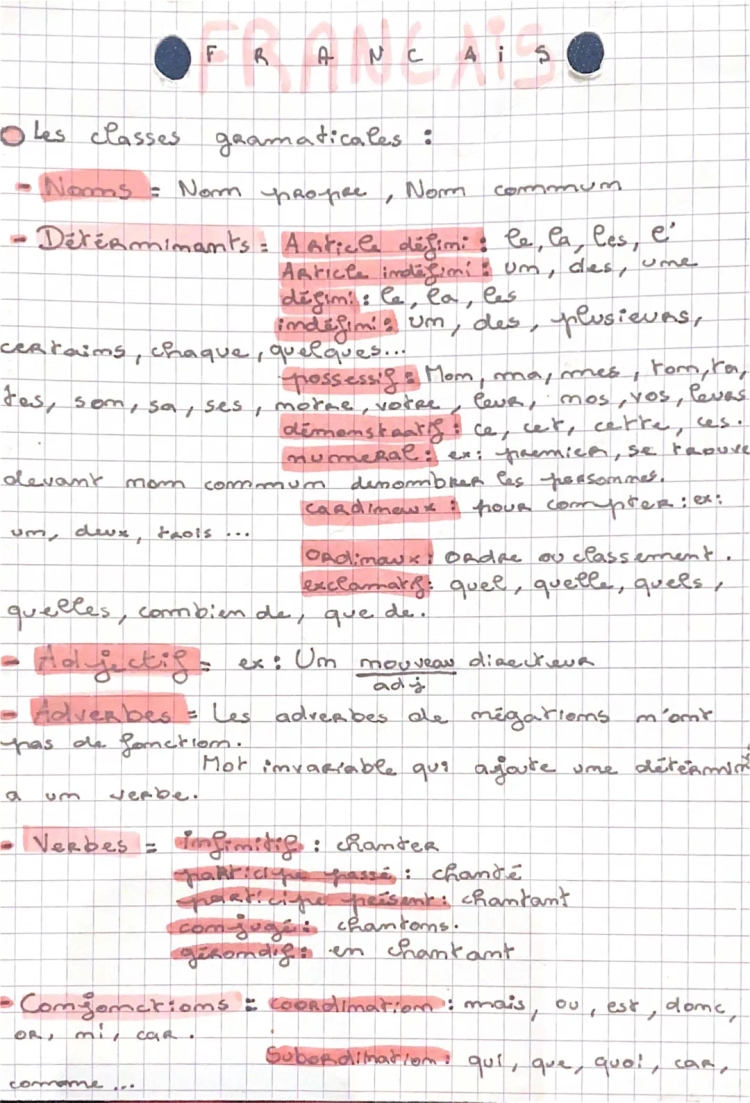 FRANCAIS
Les classes gramaticales :
- Noms = Nom propre, Nom commum
- Détérminants = Article défini : le, la, les, l'
Article indéfini : un, des, une
défini : le, la, les
indéfini : un, des, plusieurs,
certains, chaque, quelques...
possessif : Mon, ma, mes, ton, ta,
tes, son, sa, ses, notre, votre, leur, nos, vos, leurs
démonstratif : ce, cet, cette, ces.
numeral : ex : premier, se trouve
devant nom commun denombrer les personnes.
cardinaux : pour compter : ex :
un, deux, trois ...
Ordinaux : ordre ou classement.
exclamatif : quel, quelle, quels,
quelles, combien de, que de.
- Adjectif = ex : Un nouveau directeur
adj
- Adverbes = Les adverbes de négations n'ont
pas de fonction.
Mot invariable qui ajoute une
a un verbe.
- Verbes = infinitif : chanter
participe passé : chanté
participe présent : chantant
conjugé : chantons.
gérondif : en chantant
- Conjonctions = coordination : mais, ou, est, donc,
or, ni, car.
Subordination : qui, que, quoi, car,
comme...